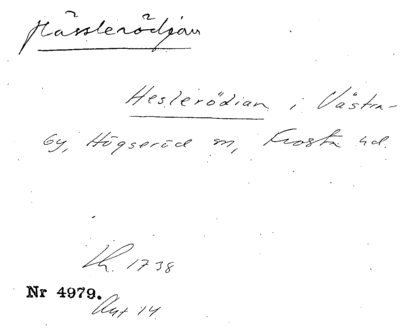 Hässlerödjan
Heslerödian i Västra-
by, Högseröd sn, Frosta hd.
Lh. 1738
Nr 4979.
Akt 14